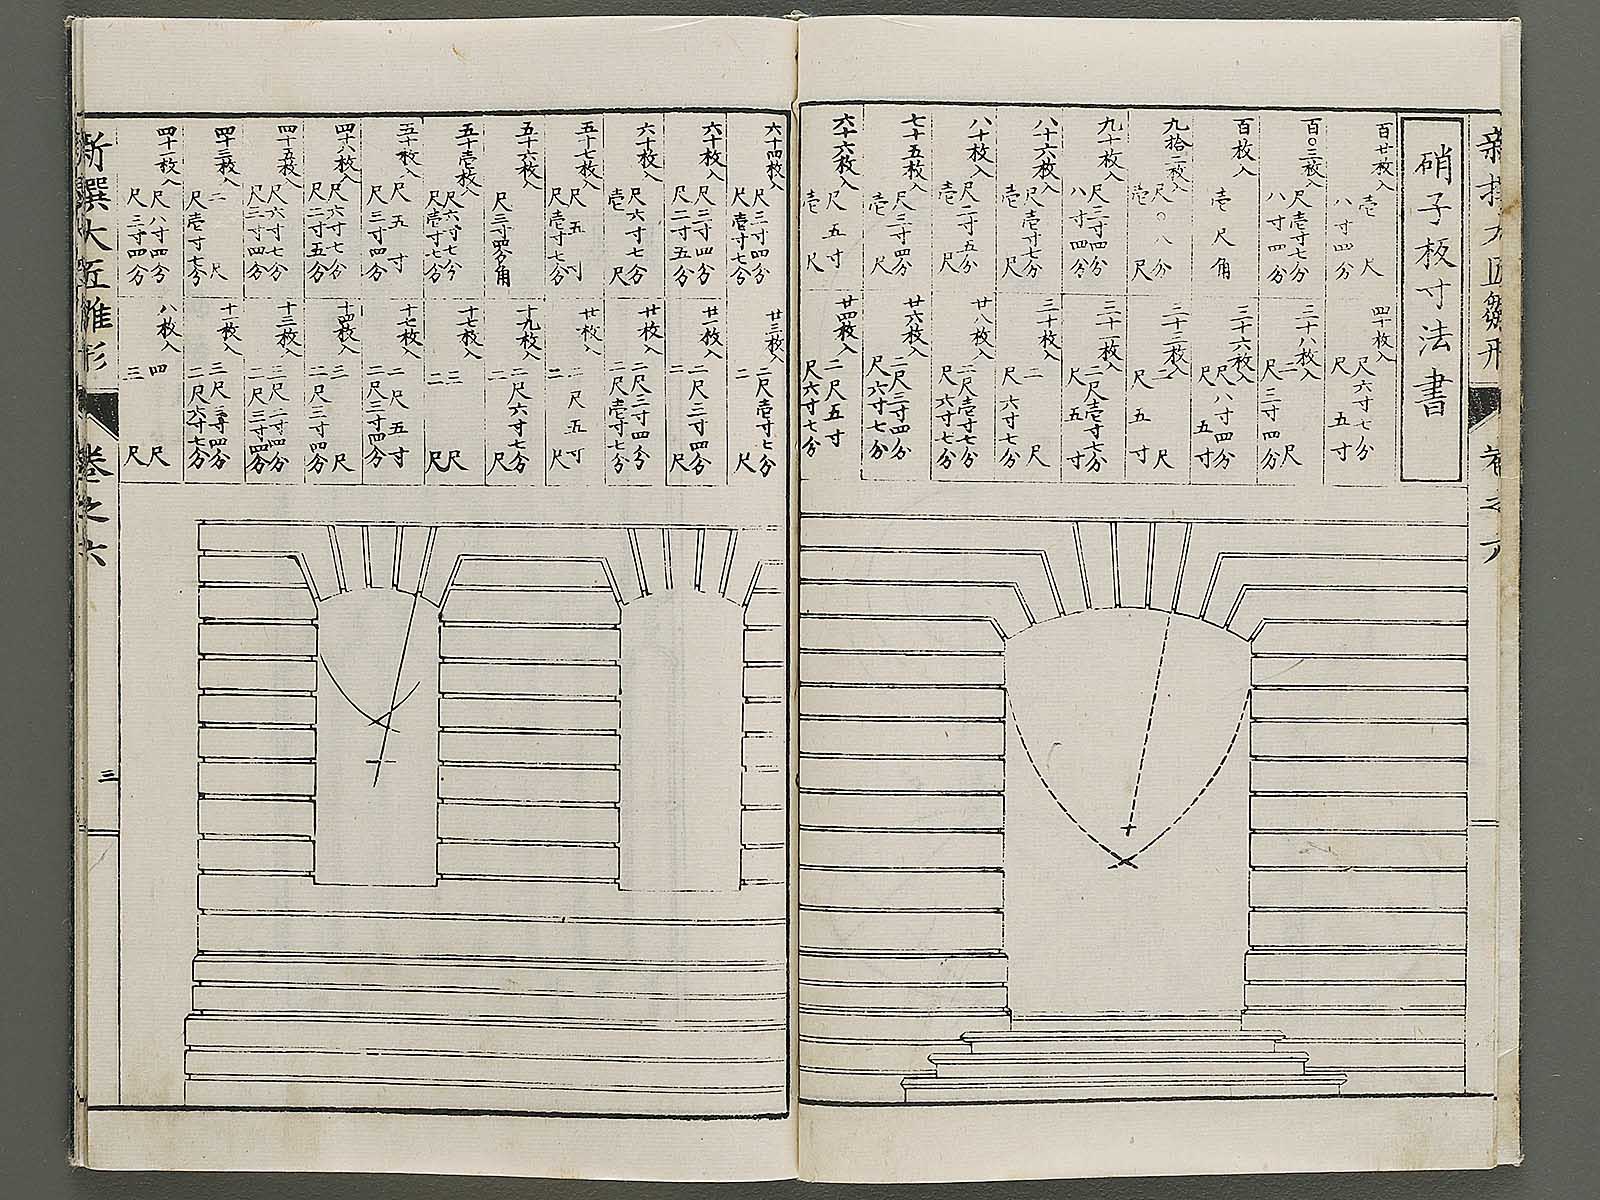 新撰大匠雛形
卷之六
硝子板寸法書
百廿枚入 壱尺 八寸四分
百〇二枚入 尺壱寸七分 八寸四分
百枚入 壱尺角
九拾二枚入 尺〇八分 壱尺
九十枚入 尺三寸四分 八寸四分
八十六枚入 尺壱寸七分 壱尺
八十枚入 尺二寸五分 壱尺
七十五枚入 尺三寸四分 壱尺
六十六枚入 尺五寸 壱尺
四十枚入 尺六寸七分 尺五寸
三十八枚入 二尺 尺三寸四分
三十六枚入 尺八寸四分 尺五寸
三十三枚入 二尺 尺五寸
三十一枚入 二尺壱寸七分 尺五寸
三十枚入 二尺 尺六寸七分
廿八枚入 二尺壱寸七分 尺六寸七分
廿六枚入 二尺三寸四分 尺六寸七分
廿四枚入 二尺五寸 尺六寸七分
六十四枚入 尺三寸四分 尺壱寸七分
六十枚入 尺三寸四分 尺二寸五分
六十枚入 尺六寸七分 壱尺
五十七枚入 尺五寸 尺壱寸七分
五十六枚入 尺三寸四分角
五十壱枚入 尺六寸七分 尺壱寸七分
五十枚入 尺五寸 尺三寸四分
四十八枚入 尺六寸七分 尺二寸五分
四十五枚入 尺六寸七分 尺三寸四分
四十三枚入 二尺 尺壱寸七分
四十一枚入 尺八寸四分 尺三寸四分
廿三枚入 二尺壱寸七分 二尺
廿一枚入 二尺三寸四分 二尺
廿枚入 二尺三寸四分 二尺壱寸七分
廿枚入 二尺五寸 二尺
十九枚入 二尺六寸七分 二尺
十七枚入 三尺 二尺
十七枚入 二尺五寸 二尺三寸四分
十四枚入 三尺 二尺三寸四分
十三枚入 三尺二寸四分 二尺三寸四分
十一枚入 三尺三寸四分 二尺六寸七分
八枚入 四尺 三尺
新撰大匠雛形
卷之六
三